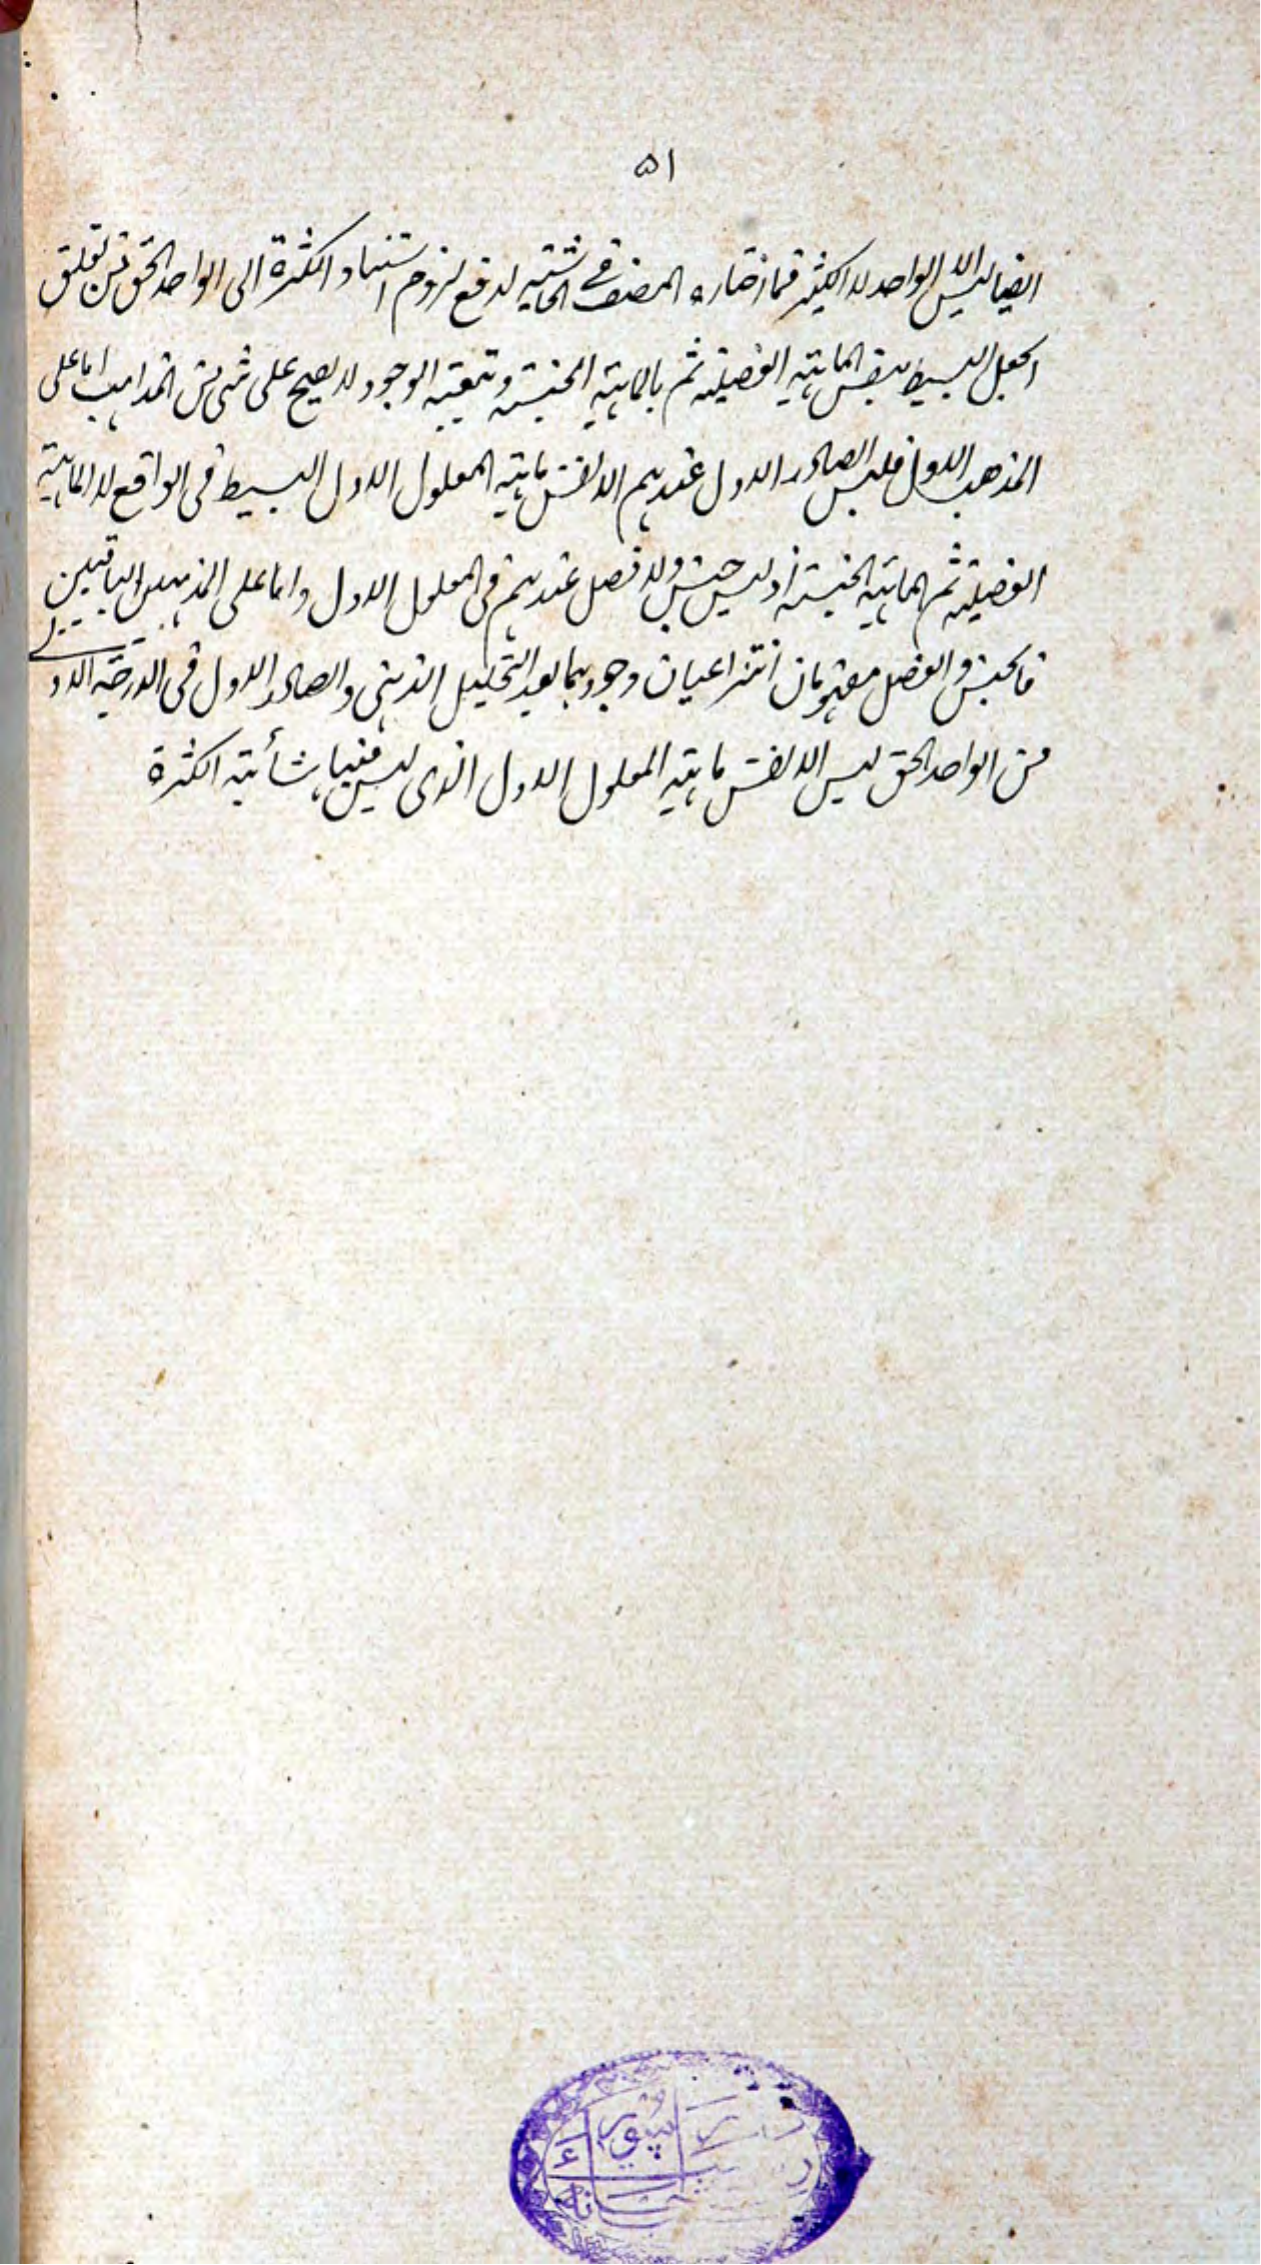 ٥١
ايضا ليس الا الواحد لا الكثير فما اختاره المصنف في الحاشية لدفع لزوم استناد الكثرة الى الواحد الحق من تعلق
الجعل البسيط بنفس الماهية الفصلية ثم بالماهية الجنسية وتبعية الوجود لا يصح على شئ من المذاهب اما على
المذهب الاول فليس الصادر الاول عندهم الا نفس ماهية المعلول الاول البسيط في الواقع لا الماهية
الفصلية ثم الماهية الجنسية اذ ليس جنس ولا فصل عندهم في المعلول الاول واما على المذهبين الباقيين
فالجنس والفصل مفهومان انتزاعيان وجودهما بعد التحليل الذهني والصادر الاول في الدرجة الاولى
من الواحد الحق ليس الا نفس ماهية المعلول الاول الذي ليس فيها شائبة الكثرة